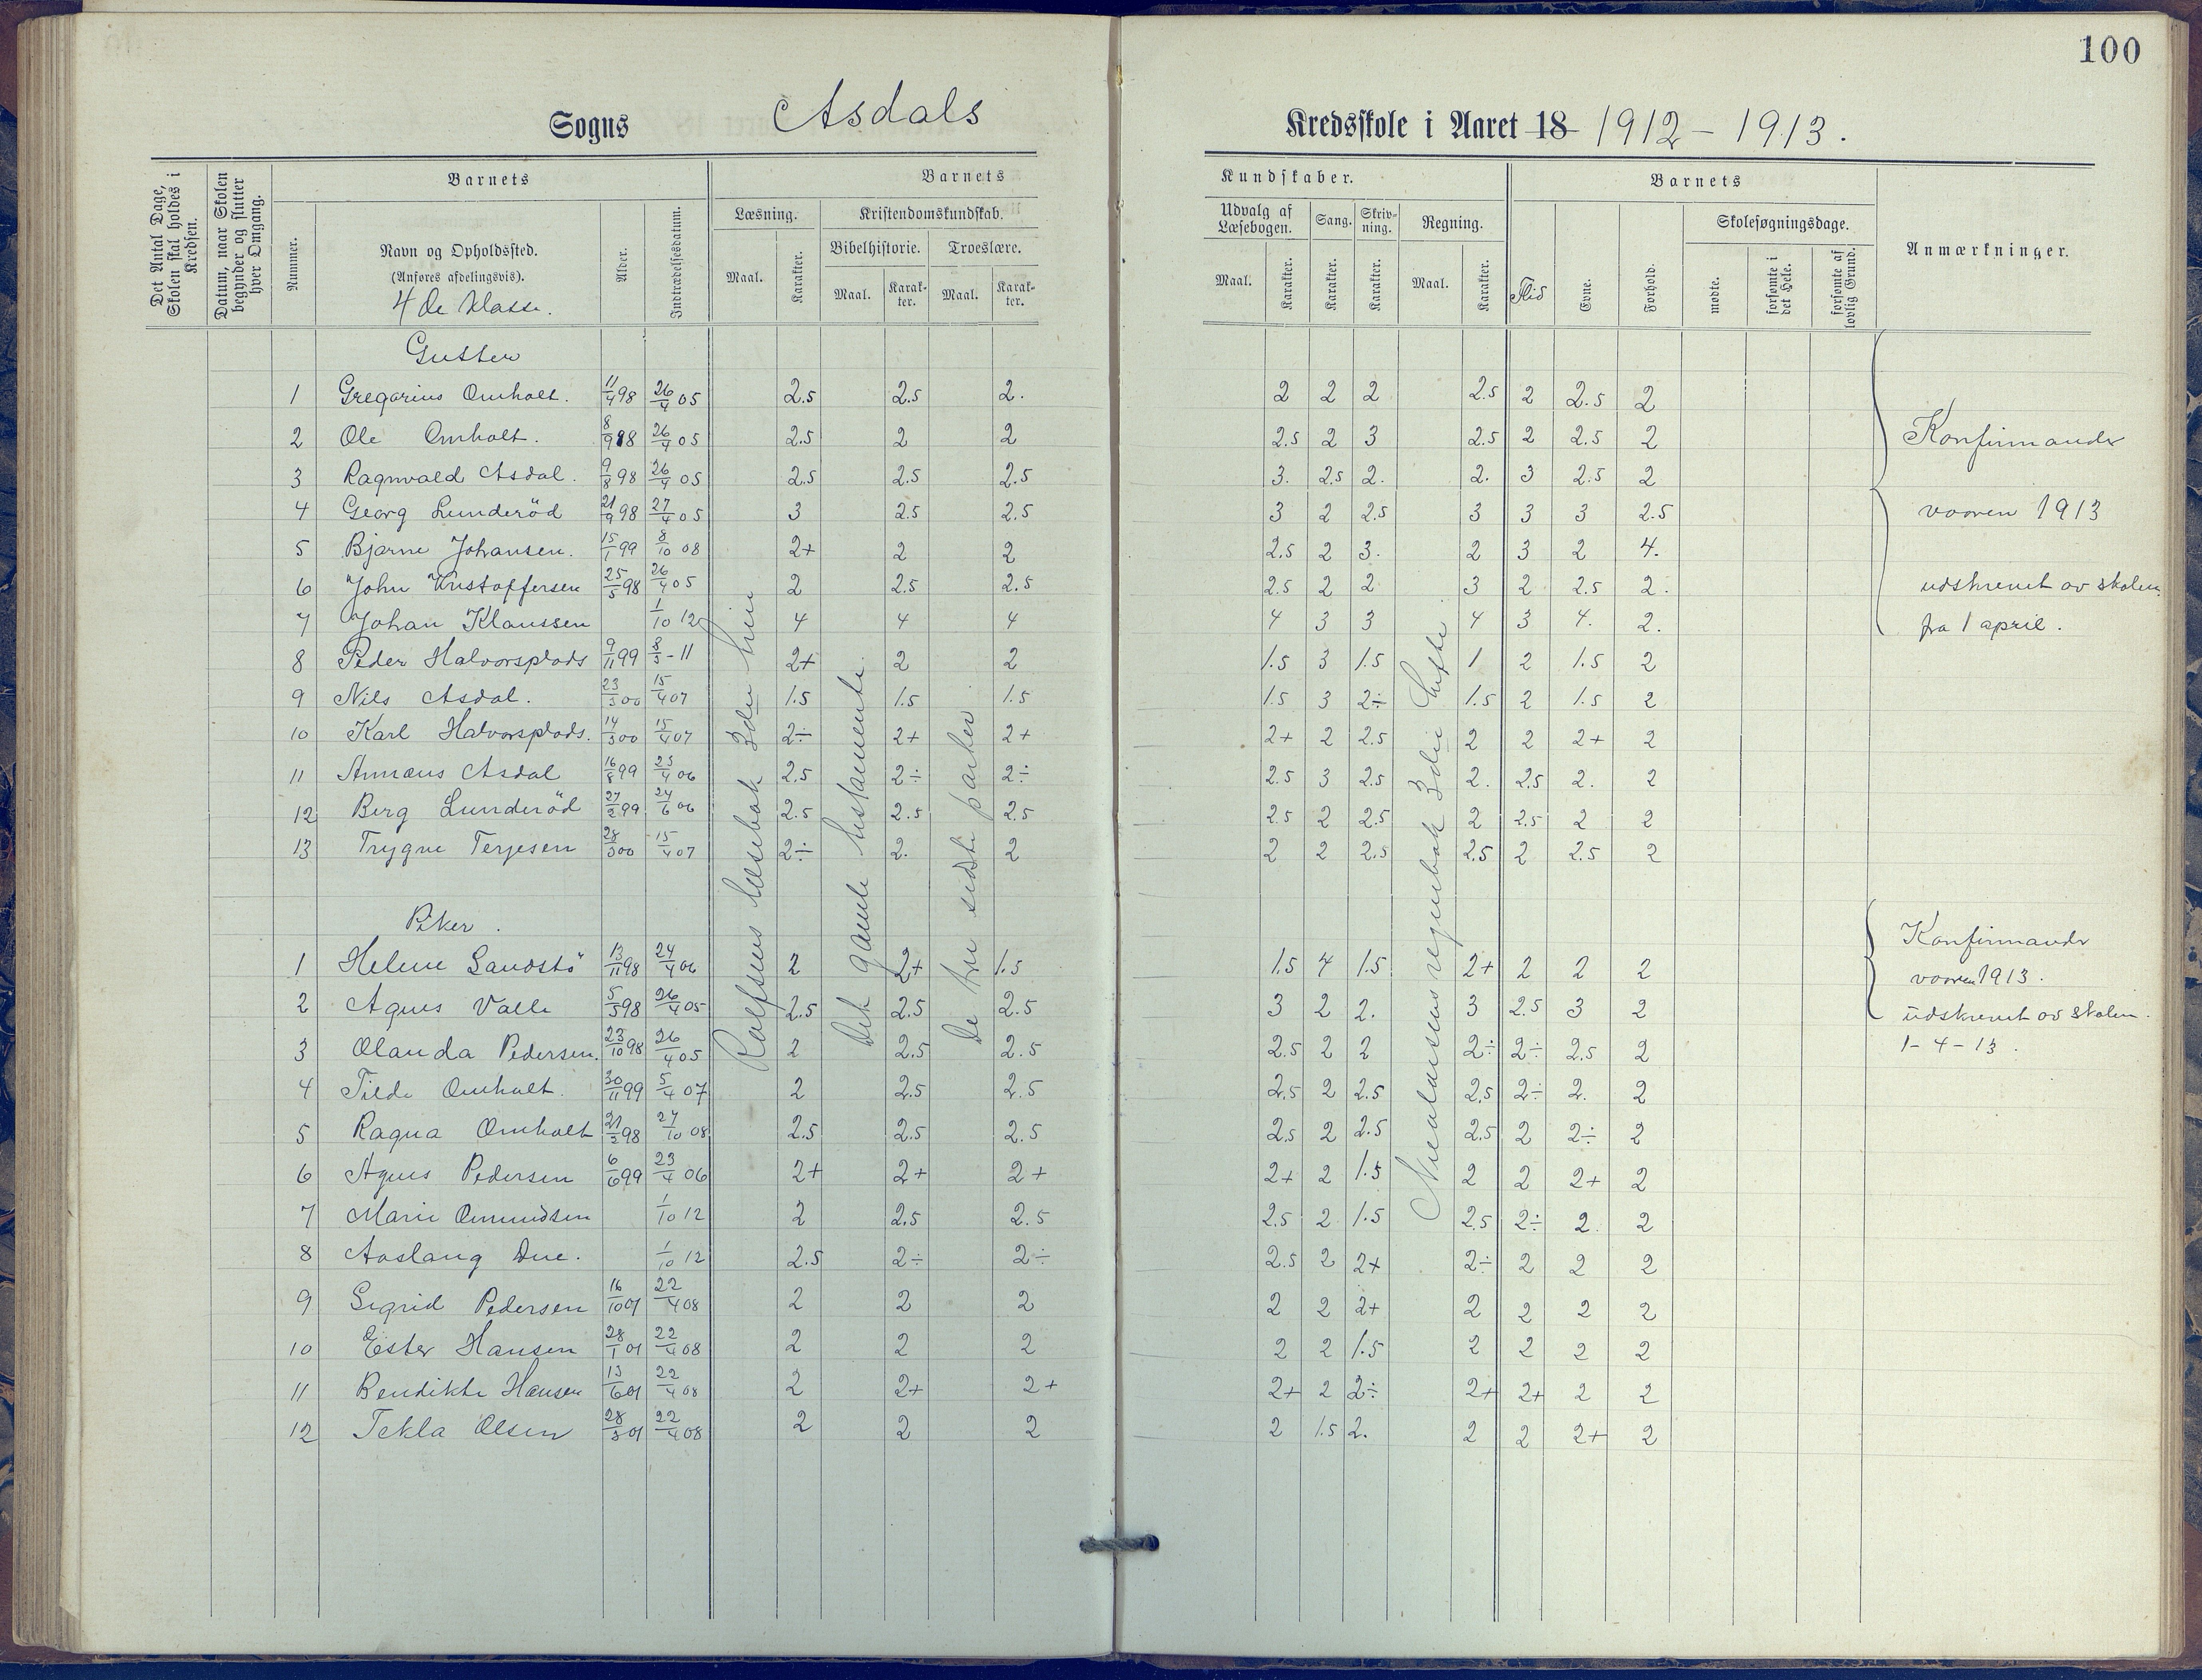 100
Sogns Asdals Kredsskole i Aaret 18 1912 – 1913.
Det Antal Dage, Skolen skal holdes i Kredsen.
Datum, naar Skolen begynder og slutter hver Omgang.
Nummer.
Barnets
Navn og Opholdssted.
(Anføres afdelingsvis).
4de klasse.
Alder.
Indtrædelsesdatum.
Barnets Kundskaber.
Læsning. Maal. Karakter.
Kristendomskundskab.
Bibelhistorie. Maal. Karakter.
Troeslære. Maal. Karakter.
Udvalg af Læsebogen. Maal. Karakter.
Sang. Karakter.
Skrivning. Karakter.
Regning. Maal. Karakter.
Barnets
Flid Evne. Forhold.
Skolesøgningsdage.
mødte. forsømte i det Hele. forsømte af lovlig Grund.
Anmærkninger.
Gutter
1 Gregorius Omholt. 11/4 98 26/4 05 2.5 2.5 2. 2 2 2 2.5 2 2.5 2
2 Ole Omholt. 8/9 98 26/4 05 2.5 2 2 2.5 2 3 2.5 2 2.5 2
3 Ragnvald Asdal. 9/8 98 26/4 05 2.5 2.5 2.5 3. 2.5 2. 2. 3 2.5 2
4 Georg Lunderöd 21/9 98 27/4 05 3 2.5 2.5 3 2 2.5 3 3 3 2.5
5 Bjarne Johansen. 15/1 99 8/10 08 2+ 2 2 2.5 2 3. 2 3 2 4.
6 John Kristoffersen 25/5 98 26/4 05 2 2.5 2.5 2.5 2 2 3 2 2.5 2.
7 Johan Klaussen 1/10 12 4 4 4 4 3 3 4 3 4. 2.
8 Peder Halvorsplads 9/11 99 8/3 - 11 2+ 2 2 1.5 3 1.5 1 2 1.5 2
9 Nils Asdal. 23/3 00 15/4 07 1.5 1.5 1.5 1.5 3 2÷ 1.5 2 1.5 2
10 Karl Halvorsplads. 14/3 00 15/4 07 2÷ 2+ 2+ 2+ 2 2.5 2 2 2+ 2
11 Annæus Asdal 16/8 99 25/4 06 2.5 2÷ 2÷ 2.5 3 2.5 2. 2.5 2. 2
12 Berg Lunderöd 27/2 99 24/6 06 2.5 2.5 2.5 2.5 2 2.5 2 2.5 2 2
13 Trygve Terjesen 28/3 00 15/4 07 2÷ 2. 2 2 2 2.5 2.5 2 2.5 2
Konfirmander
vaaren 1913
udskrevet av skolen
fra 1 april.
Rolfsens læsebok 3die trin
Det gamle testamente.
De tre sidste parter
Nicolaisens regnebok 3die hefte.
Piker.
1 Helene Sandstö 13/11 98 24/4 06 2 2+ 1.5 1.5 4 1.5 2+ 2 2 2
2 Agnes Valle 5/3 98 26/4 05 2.5 2.5 2.5 3 2 2. 3 2.5 3 2
3 Olanda Pedersen. 23/10 98 26/4 05 2 2.5 2.5 2.5 2 2 2÷ 2÷ 2.5 2
4 Tilda Omholt. 30/11 99 5/4 07 2 2.5 2.5 2.5 2 2.5 2.5 2÷ 2. 2
5 Ragna Omholt 21/3 98 27/10 08 2.5 2.5 2.5 2.5 2 2.5 2.5 2 2÷ 2
6 Agnes Pedersen 6/6 99 23/4 06 2+ 2+ 2+ 2+ 2 1.5 2 2 2+ 2
7 Marie Omundsen 1/10 12 2 2.5 2.5 2.5 2 1.5 2.5 2÷ 2. 2
8 Aaslaug Due. 1/10 12 2.5 2÷ 2÷ 2.5 2 2+ 2÷ 2 2 2
9 Sigrid Pedersen 16/10 01 22/4 08 2 2 2 2 2 2+ 2 2 2 2
10 Ester Hansen 28/1 01 22/4 08 2 2 2 2 2 1.5 2 2 2 2
11 Bendikte Hansen 13/6 01 22/4 08 2 2+ 2+ 2+ 2 2÷ 2+ 2+ 2 2
12 Tekla Olsen 28/3 01 22/4 08 2 2 2 2 1.5 2. 2 2 2+ 2
Konfirmander
vaaren 1913.
udskrevet av skolen.
1 - 4 - 13.